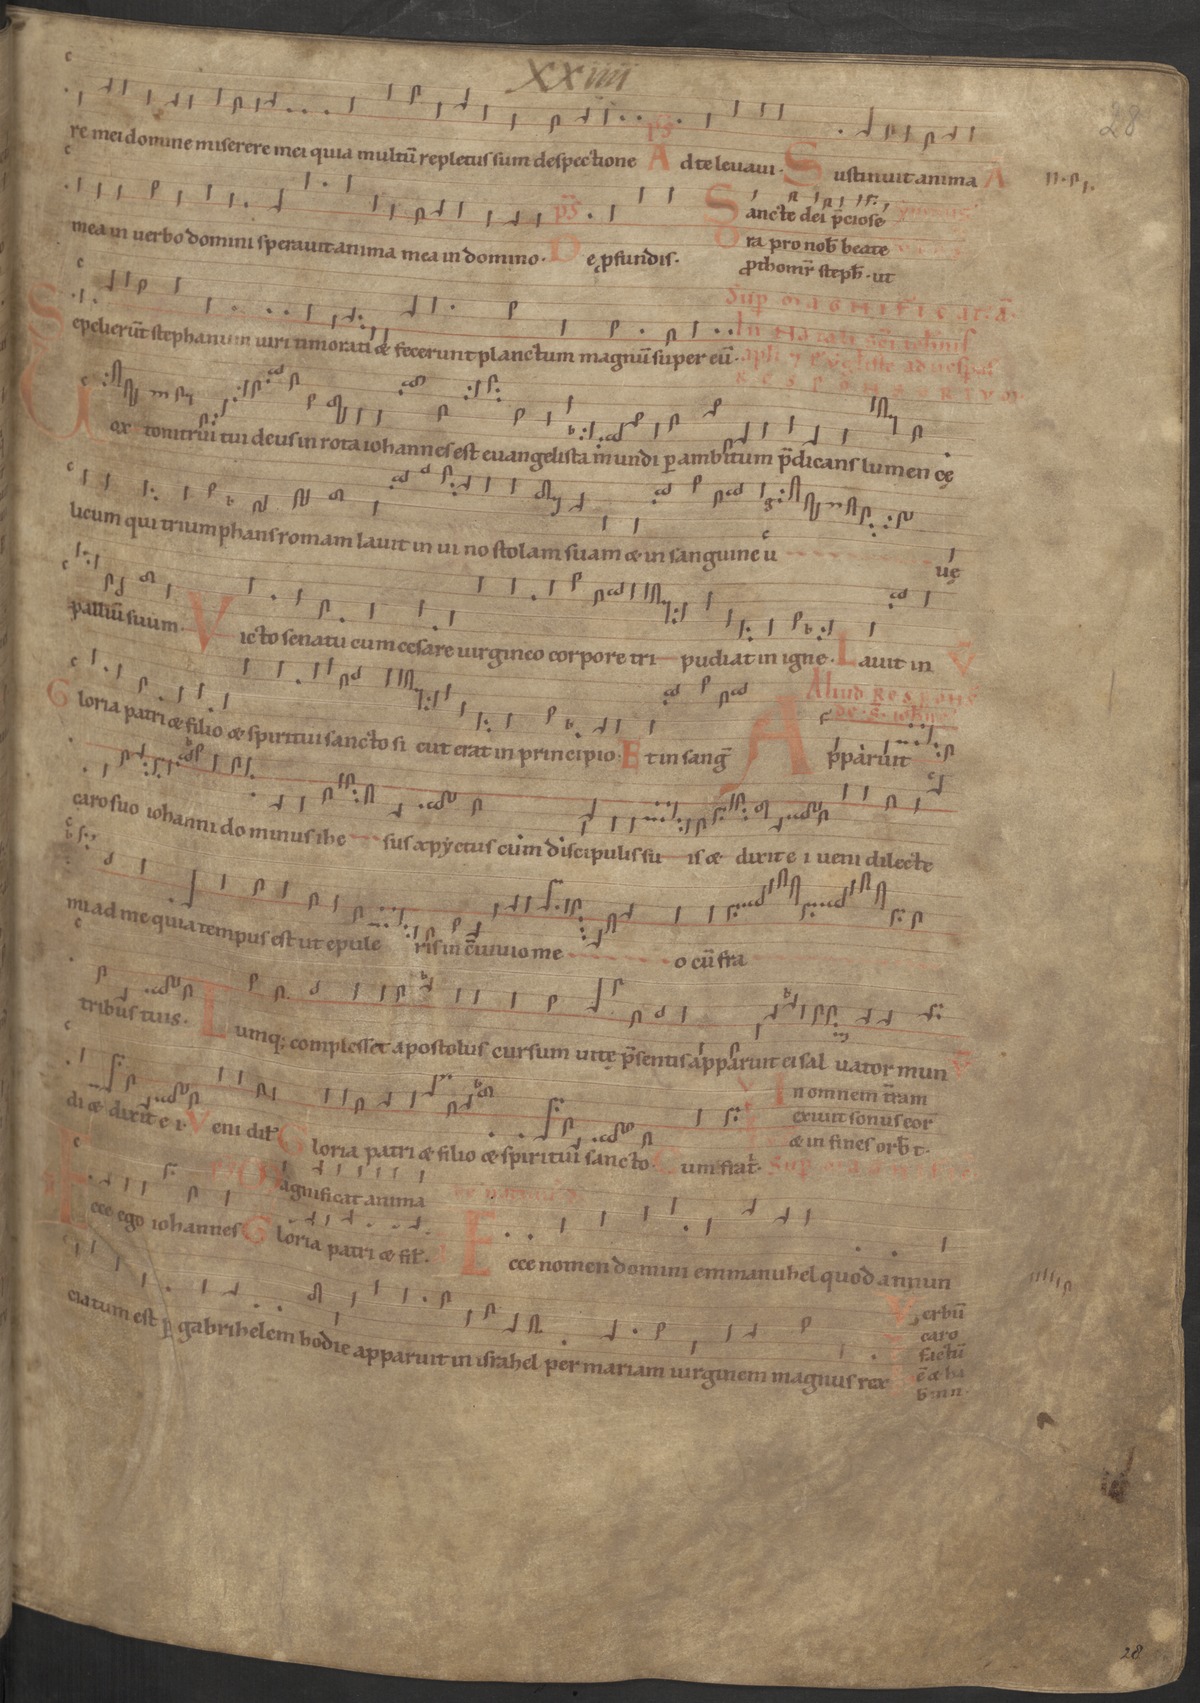 XXIIII
28
re mei domine miserere mei quia multū repletus sum despectione
ps
A d te levavi. S ustinuit anima
mea in verbo domini speravit anima mea in domino.
ps
D e ꝓfundis.
S ancte dei p̄ciose
O ra pro nob beate
ꝓthomr̄ steph. ut
S epelierūt stephanum viri timorati & fecerunt planctum magnū super eū.
Sup
In
apli
V ox tonitrui tui deus in rota iohannes est euangelista mundi ꝑ ambitum p̄dicans lumen cę
licum qui triumphans romam lauit in ui no stolam suam & in sanguine u
uę
palliū suum. V icto senatu cum cesare uirgineo corpore tri pudiat in igne. L auit in V
G loria patri & filio & spiritui sancto si cut erat in principio. E t in sanḡ
Aliud
A pparuit
caro suo iohanni do minus ihe sus xpyctus cum discipulis su is & dixit e i ueni dilecte
mi ad me quia tempus est ut epule ris in c̄uiuio me o cū fra
tribus tuis. L umq; complesset apostolus cursum uitę p̄sentis apparuit ei sal uator mun
di & dixit e i V eni dil G loria patri & filio & spiritui sancto. C um frat.
I n omnem t̄ram
exiuit sonus eor
& in fines orb t.
Sup
E cce ego iohannes M agnificat anima
G loria patri & fil.
E cce nomen domini emmanuhel quod annun
ciatum est ꝑ gabrihelem hodie apparuit in israhel per mariam uirginem magnus rex
V erbū
caro
factū
ē & ha
b. in n.
28